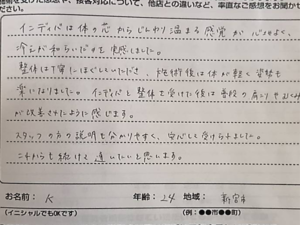 術を受けた感想や、接客対応について、他店との違いなど、率直なご感想をお聞かせ
インディバは体の芯からじんわり温まる感覚が心地よく、
冷えが和らいだのを実感しました。
整体は丁寧にほぐしていただき、施術後は体が軽く姿勢も
楽になりました。インディバと整体を受けた後は普段の肩こりやむくみ
が改善されたように感じます。
スタッフの方の説明も分かりやすく、安心して受けられました。
これからも続けて通いたいと思います。
お名前: K 年齢: 24 地域: 新宮市
(イニシャルでもOKです) (例:●●市●●町)